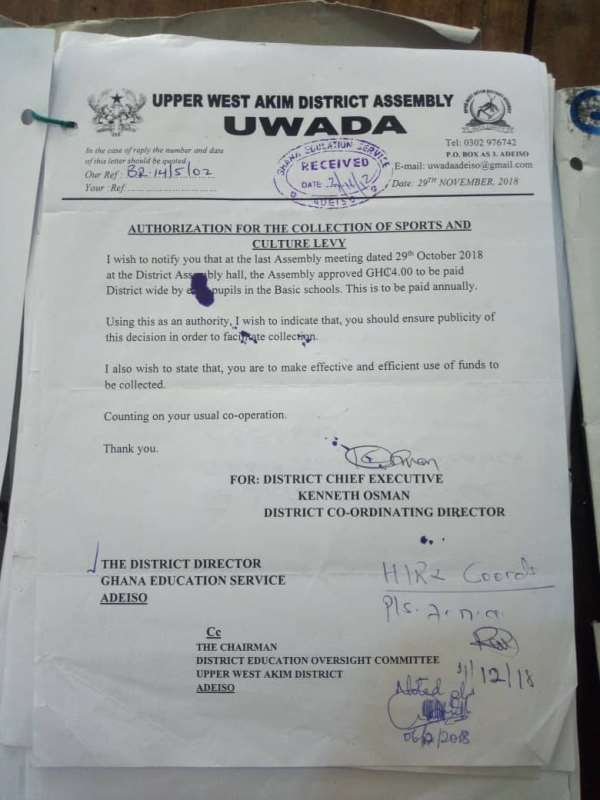 UPPER WEST AKIM DISTRICT ASSEMBLY
UWADA
Tel: 0302 976742
P.O. BOX AS 3. ADEISO
E-mail: uwadaadeiso@gmail.com
Date: 29TH NOVEMBER, 2018
In the case of reply the number and date
of this letter should be quoted
Our Ref: BR.14/5/02
Your :Ref
GHANA EDUCATION SERVICE
RECEIVED
DATE
ADEISO
AUTHORIZATION FOR THE COLLECTION OF SPORTS AND
CULTURE LEVY
I wish to notify you that at the last Assembly meeting dated 29th October 2018
at the District Assembly hall, the Assembly approved GH₵4.00 to be paid
District wide by pupils in the Basic schools. This is to be paid annually.
Using this as an authority, I wish to indicate that, you should ensure publicity of
this decision in order to facilitate collection.
I also wish to state that, you are to make effective and efficient use of funds to
be collected.
Counting on your usual co-operation.
Thank you.
FOR: DISTRICT CHIEF EXECUTIVE
KENNETH OSMAN
DISTRICT CO-ORDINATING DIRECTOR
THE DISTRICT DIRECTOR
GHANA EDUCATION SERVICE
ADEISO
Cc
THE CHAIRMAN
DISTRICT EDUCATION OVERSIGHT COMMITTEE
UPPER WEST AKIM DISTRICT
ADEISO
Pls. f.n.a.
/12/18
Noted pls